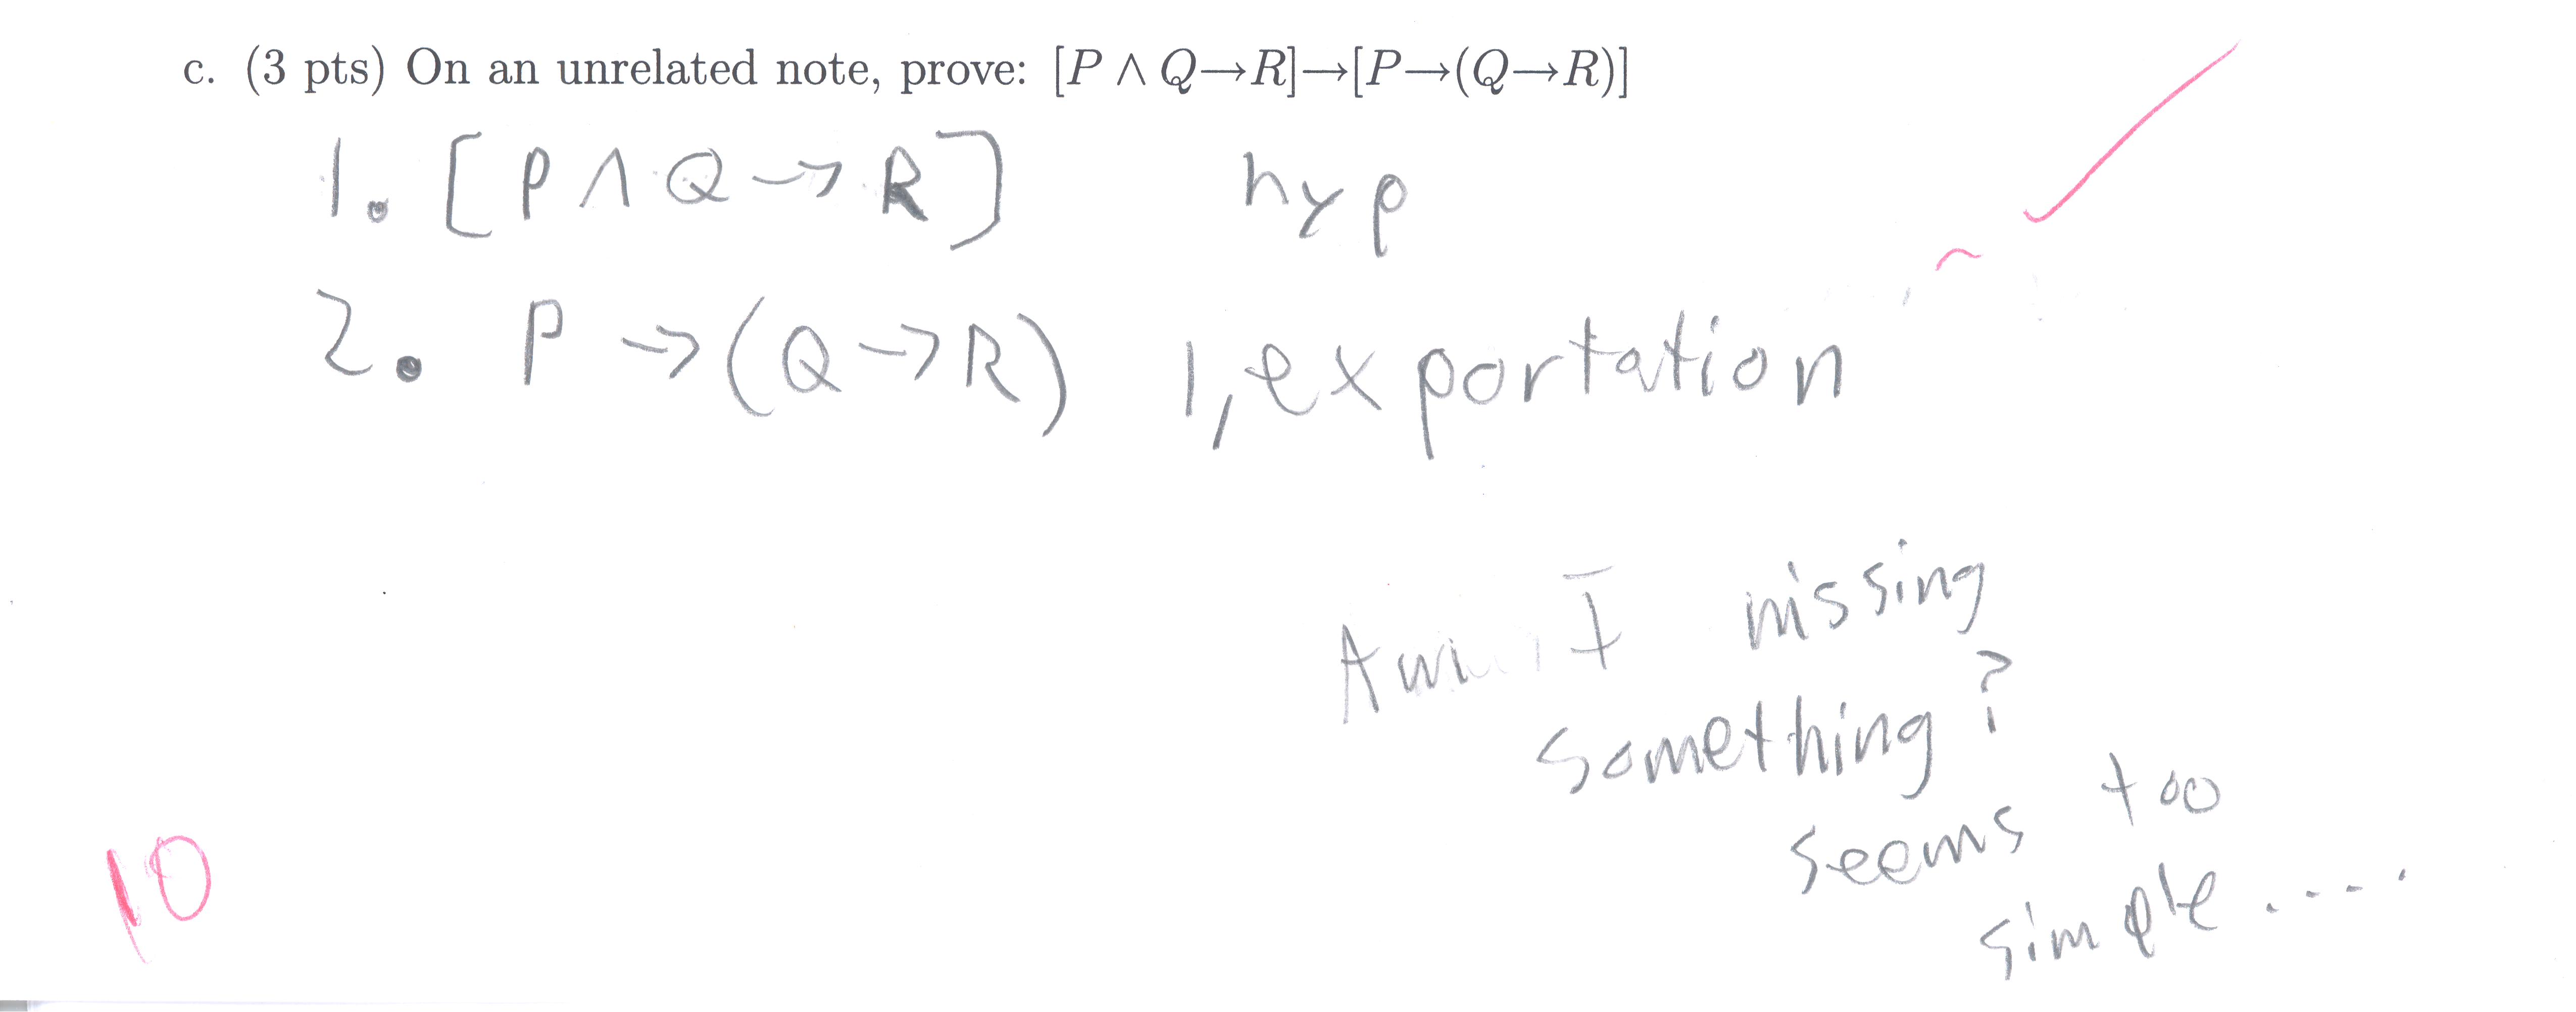 c. (3 pts) On an unrelated note, prove: [P ∧ Q→R]→[P→(Q→R)]
1. [P ∧ Q → R] hyp
2. P → (Q → R) 1, exportation
Am I missing
something?
seems too
simple....
10